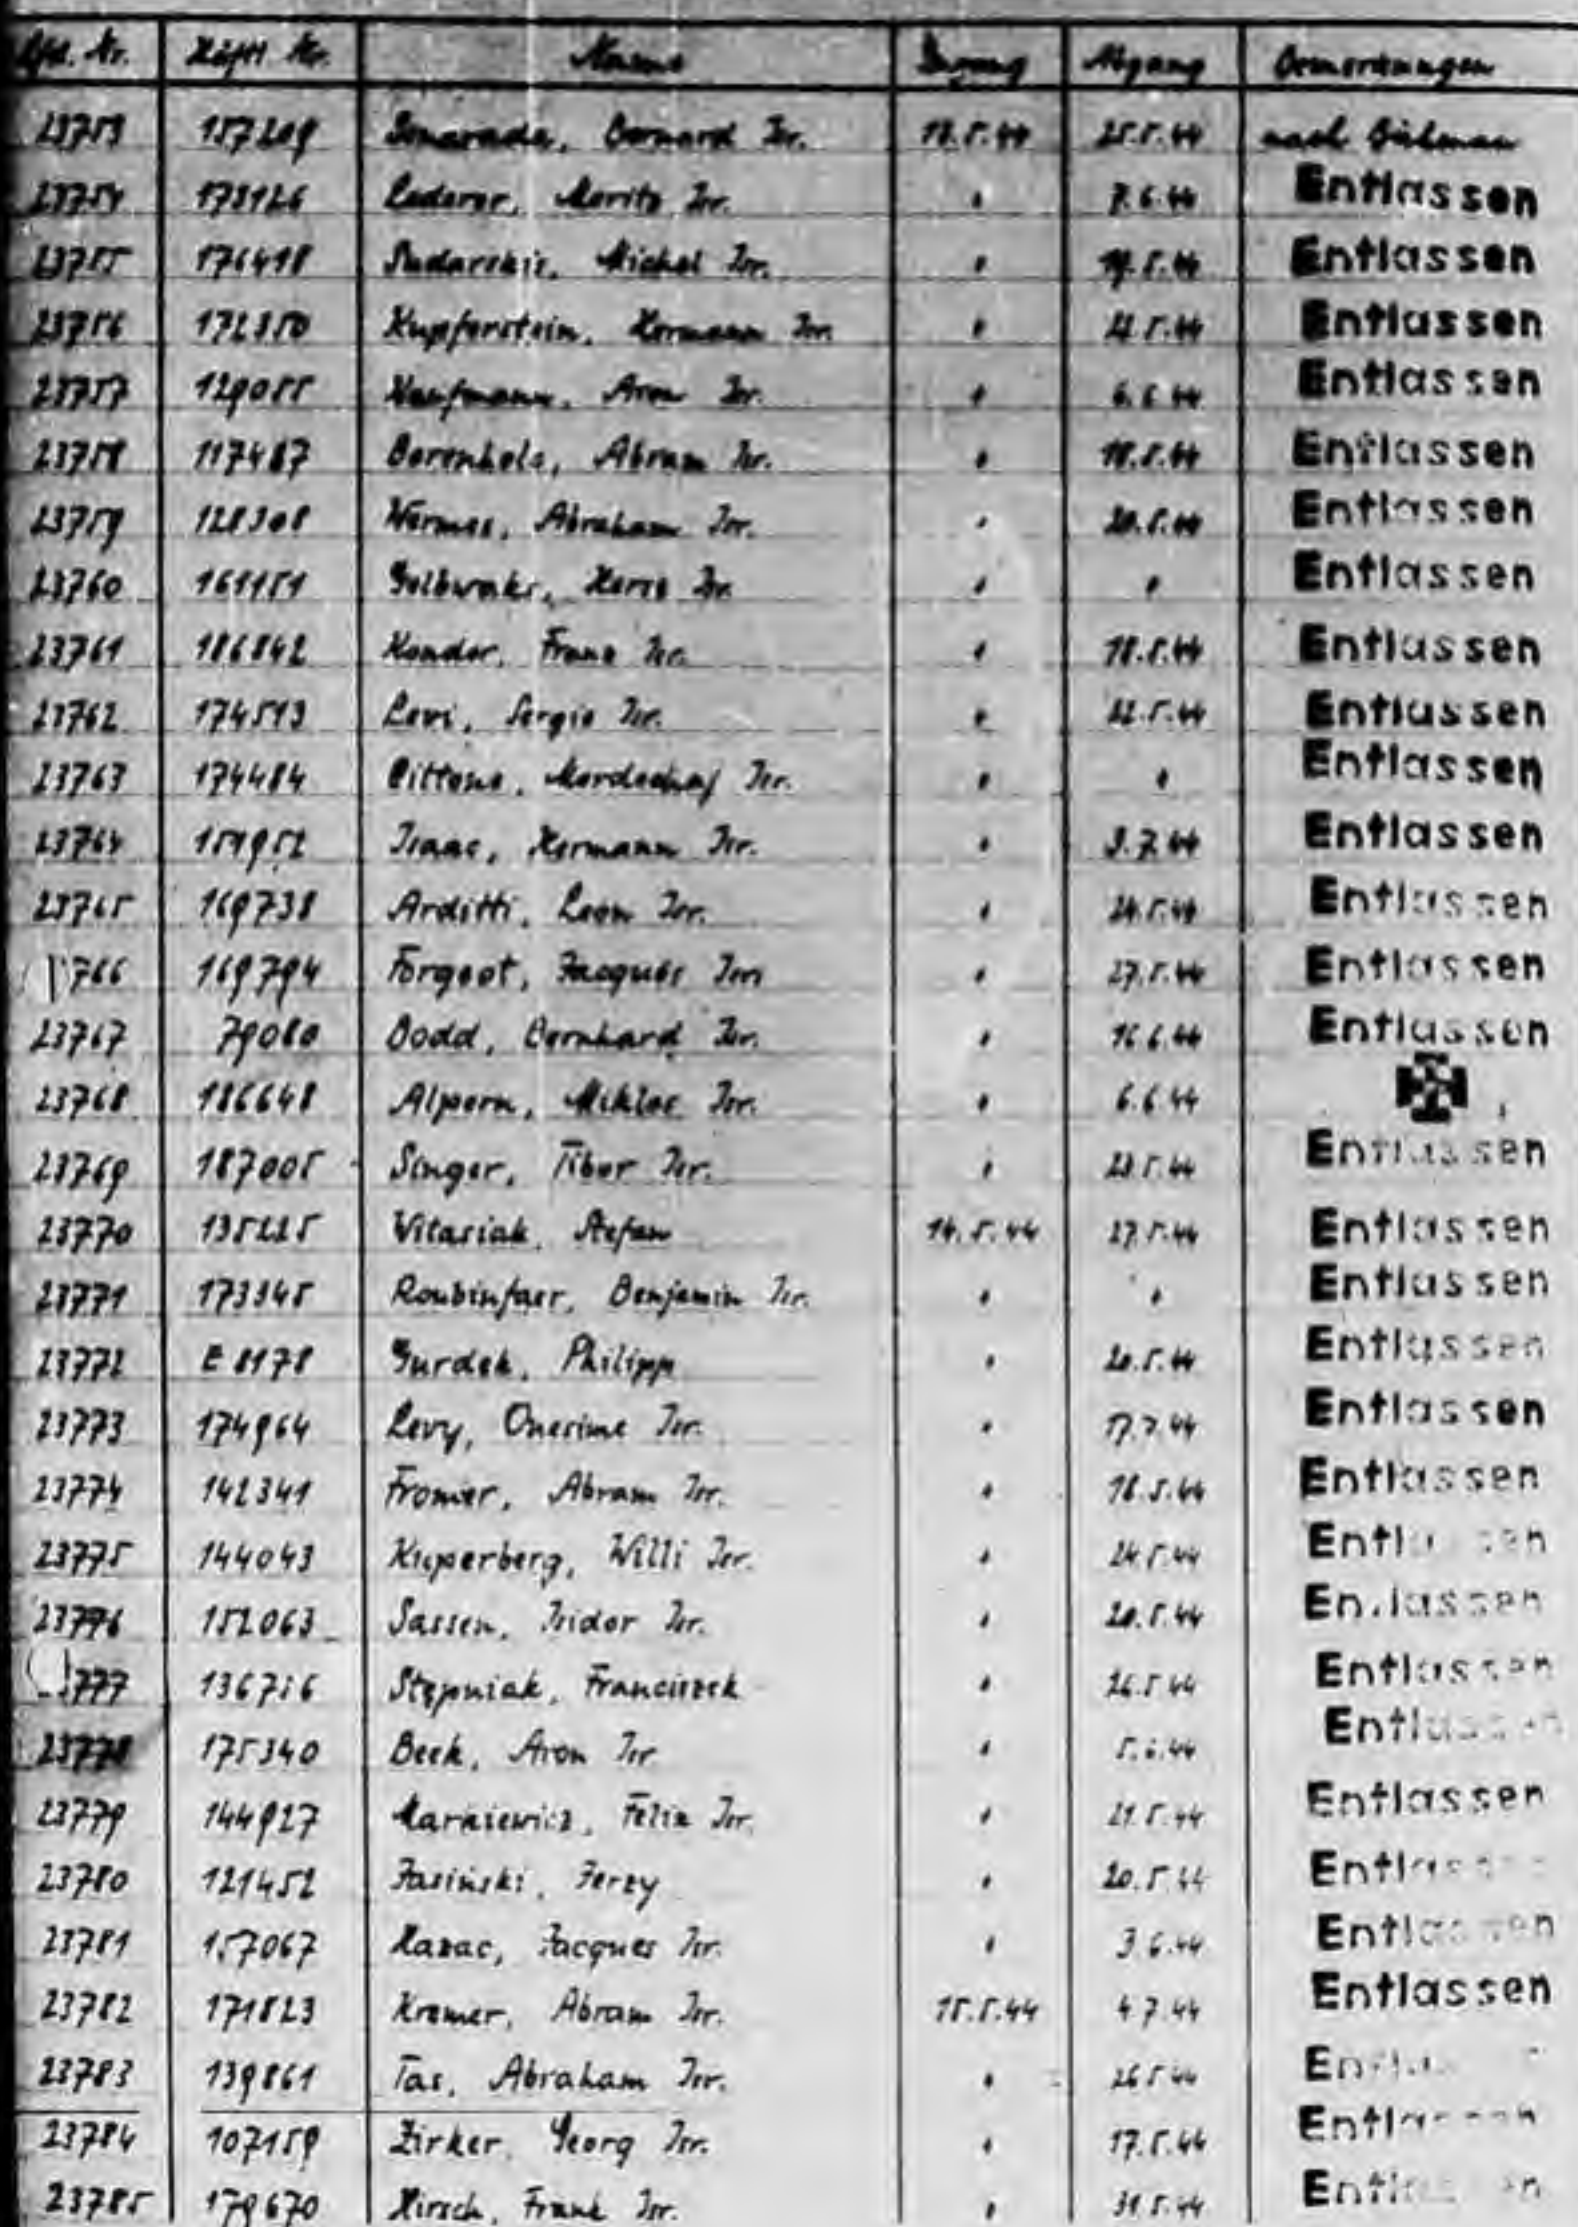 Lfd. Nr. Häftl. Nr. Name Zugang Abgang Bemerkungen
23753 157209 Bernard Isr. 13.5.44 25.5.44 nach
23754 173126 Lederer, Moritz Isr. " 7.6.44 Entlassen
23755 176418 Sudarskis, Michel Isr. " 19.5.44 Entlassen
23756 172350 Kupferstein, Hermann Isr. " 22.5.44 Entlassen
23757 129055 Kaufmann, Aron Isr. " 6.6.44 Entlassen
23758 117467 Berenholz, Abram Isr. " 18.5.44 Entlassen
23759 128308 Wermus, Abraham Isr. " 20.5.44 Entlassen
23760 161151 Isr. " " Entlassen
23761 186842 Kondor, Franz Isr. " 18.5.44 Entlassen
23762 174513 Levi, Sergio Isr. " 22.5.44 Entlassen
23763 174484 Cittone, Mordechaj Isr. " " Entlassen
23764 151952 Isaac, Hermann Isr. " 3.7.44 Entlassen
23765 169738 Arditti, Leon Isr. " 24.5.44 Entlassen
766 169794 Forgeot, Jacques Isr. " 27.5.44 Entlassen
23767 79080 Dodd, Bernhard Isr. " 16.6.44 Entlassen
23768 186648 Alpern, Miklos Isr. " 6.6.44
23769 187005 Singer, Tibor Isr. " 23.5.44 Entlassen
23770 135225 Witasiak, Stefan 14.5.44 27.5.44 Entlassen
23771 173345 Roubinfaer, Benjamin Isr. " " Entlassen
23772 E 8178 Gurdek, Philipp " 20.5.44 Entlassen
23773 174964 Levy, Onesime Isr. " 17.7.44 Entlassen
23774 142341 Fromer, Abram Isr. " 18.5.44 Entlassen
23775 144043 Kuperberg, Willi Isr. " 24.5.44 Entlassen
23776 152063 Sassen, Isidor Isr. " 20.5.44 Entlassen
777 136756 Stępniak, Franciszek " 26.5.44 Entlassen
23778 175340 Beek, Aron Isr. " 5.6.44 Entlassen
23779 144927 Markiewicz, Felix Isr. " 21.5.44 Entlassen
23780 121452 Jasiński, Jerzy " 20.5.44 Entlassen
23781 157067 Hazac, Jacques Isr. " 3.6.44 Entlassen
23782 171823 Kremer, Abram Isr. 15.5.44 4.7.44 Entlassen
23783 139861 Tas, Abraham Isr. " 26.5.44 Entlassen
23784 107159 Zirker, Georg Isr. " 17.5.44 Entlassen
23785 179670 Hirsch, Frank Isr. " 31.5.44 Entlassen